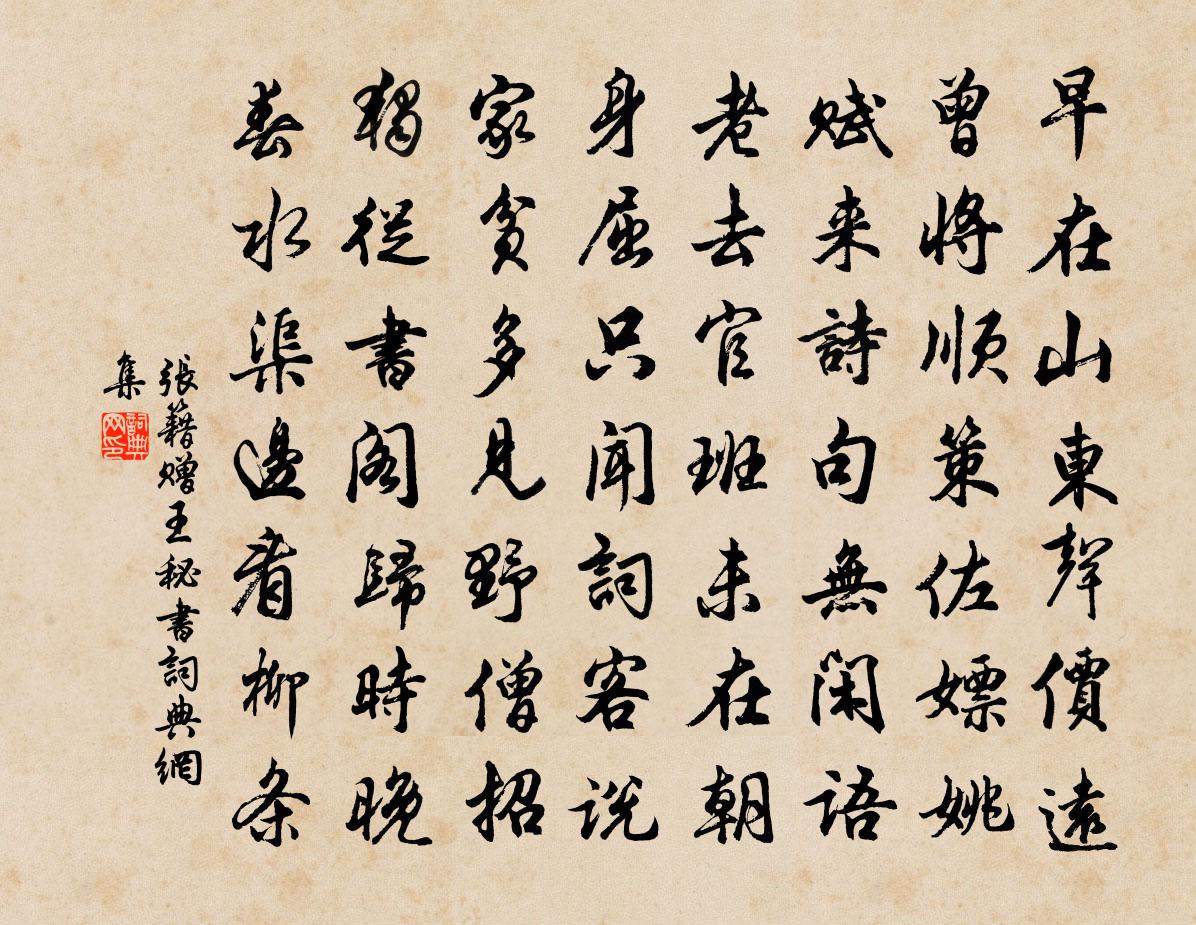 早在山東聲價遠
曾將順策佐嫖姚
賦来詩句無閑語
老去官班未在朝
身屈只聞詞客說
家貧多見野僧招
獨從書閣歸時晚
春水渠邊看柳条
張籍贈王秘書詞典網
集
詞典
网印